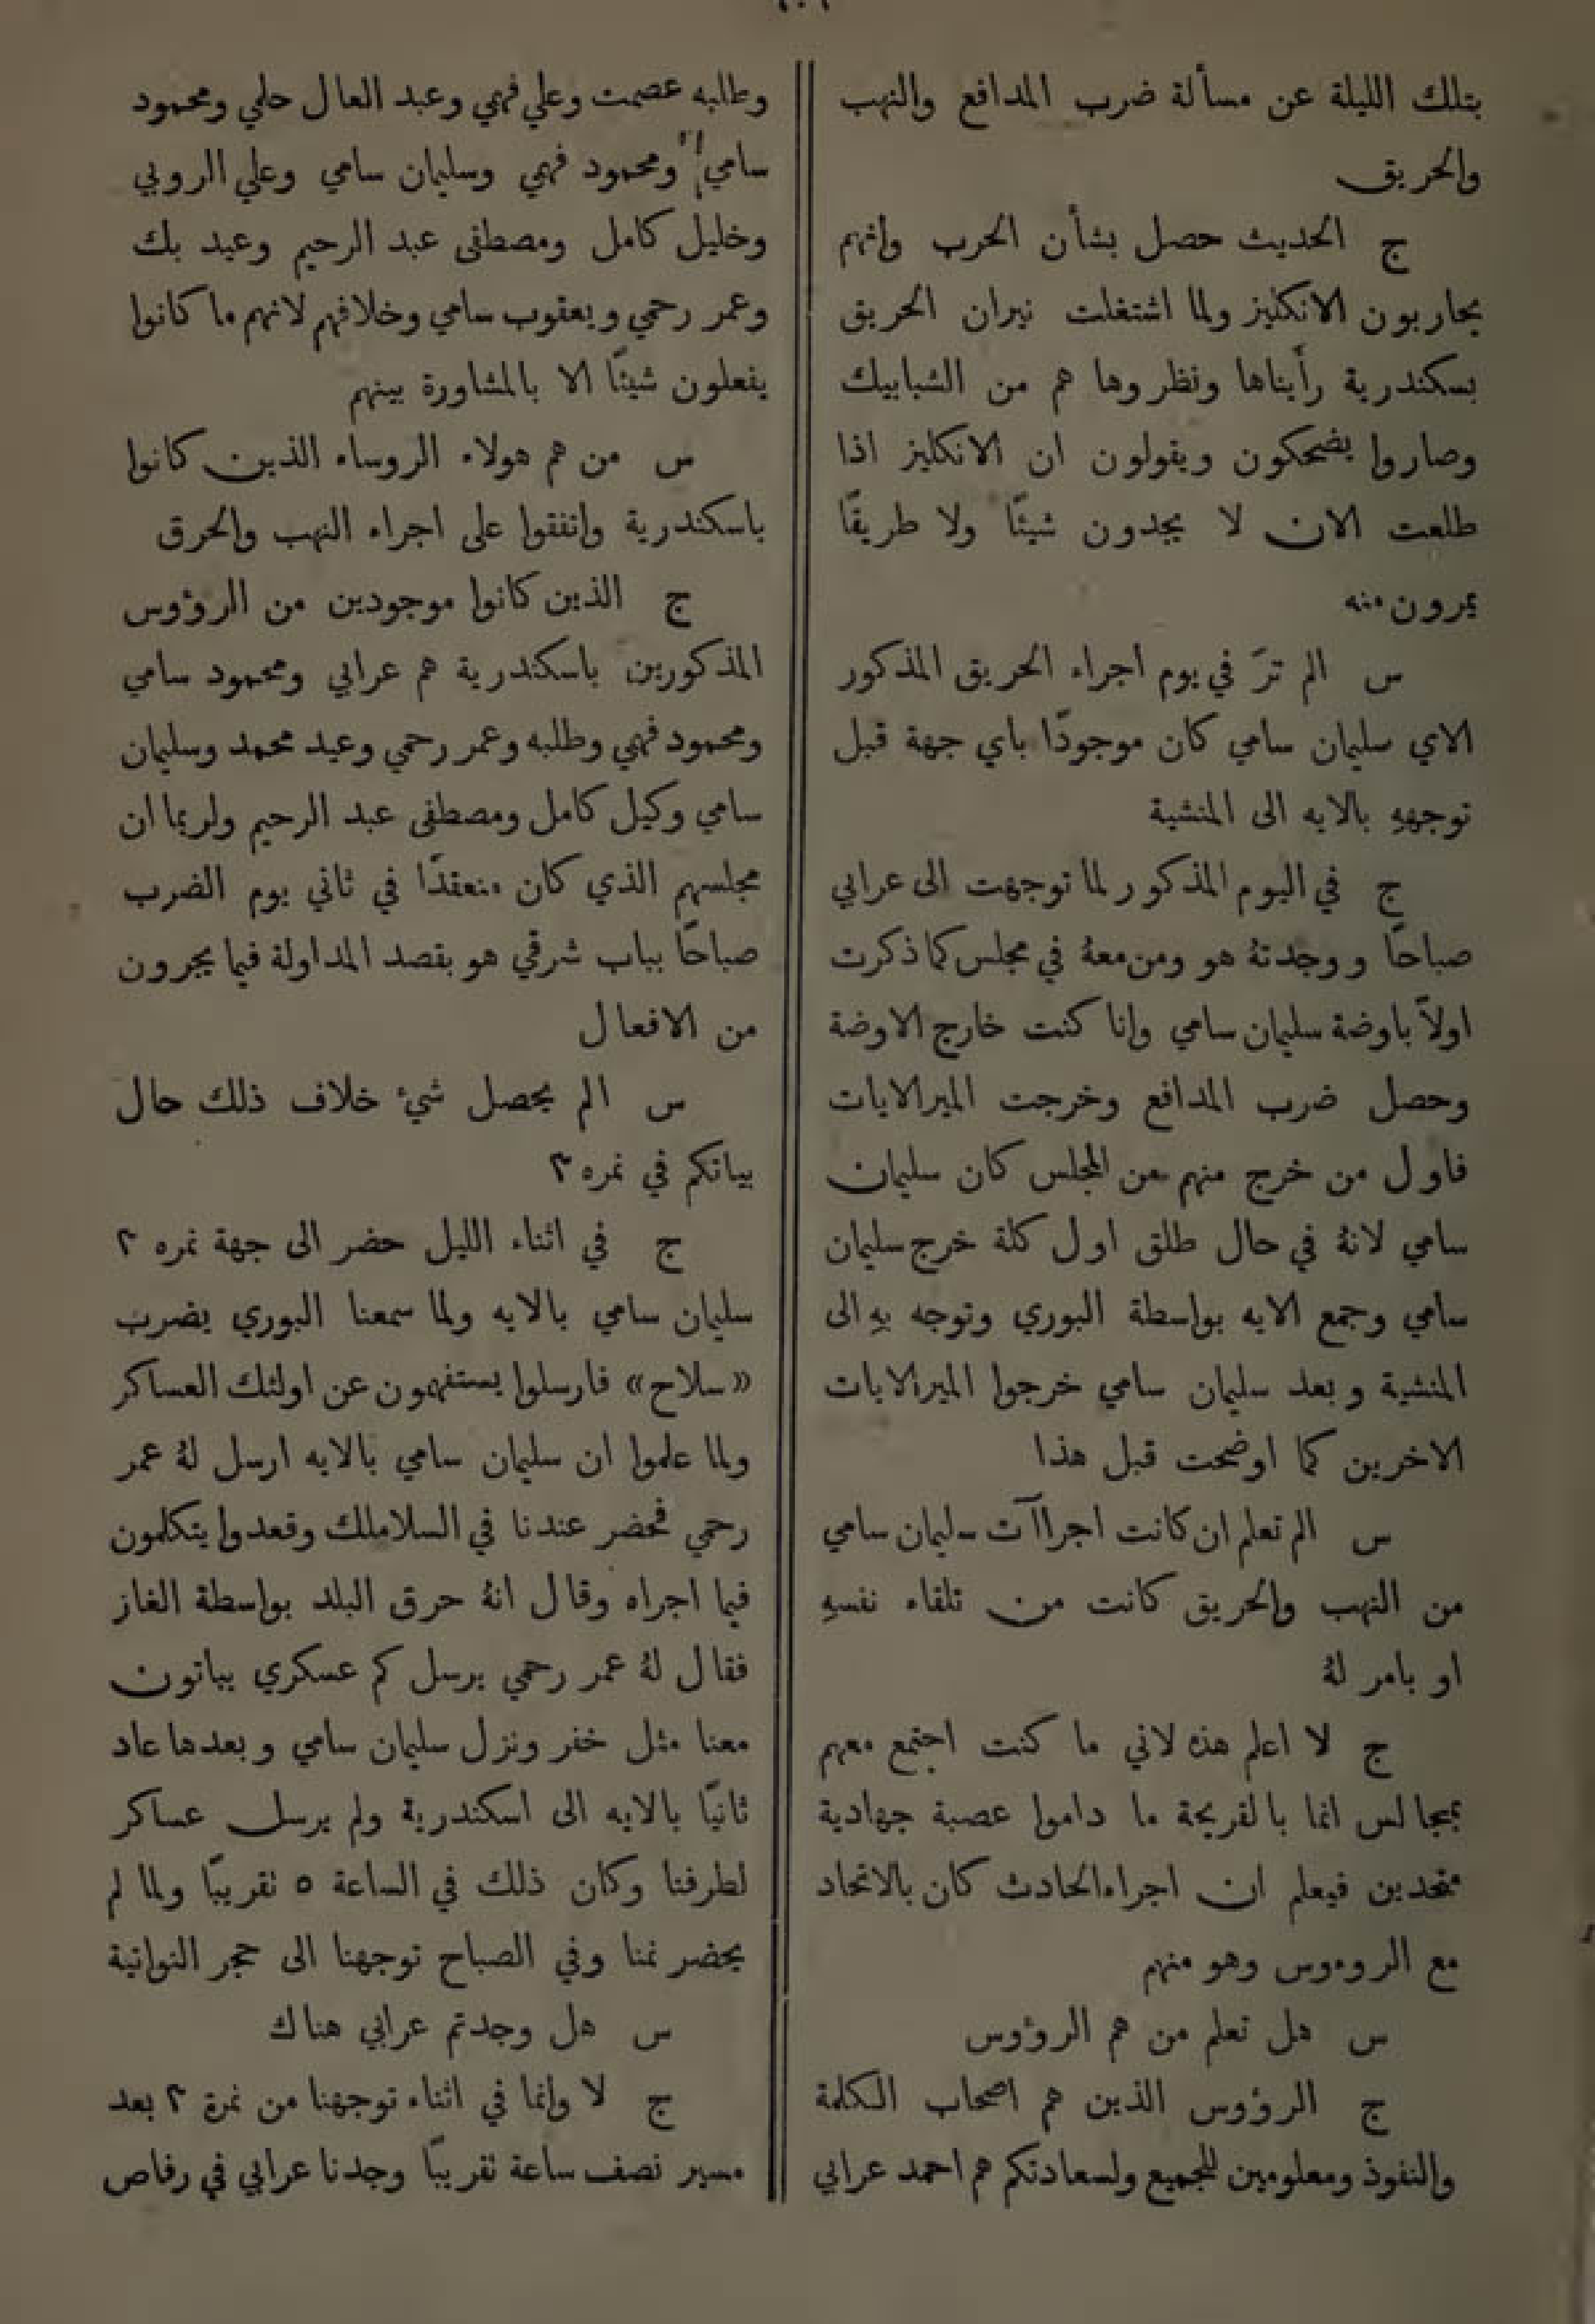 بتلك الليلة عن مسألة ضرب المدافع والنهب
والحريق
ج الحديث حصل بشأن الحرب وانهم
يحاربون الانكليز ولما اشتغلت نيران الحريق
بسكندرية رأيناها ونظروها هم من الشبابيك
وصاروا يضحكون ويقولون ان الانكليز اذا
طلعت الان لا يجدون شيئًا ولا طريقًا
يمرون منه
س الم ترَ في يوم اجراء الحريق المذكور
الاي سليمان سامي كان موجودًا باي جهة قبل
توجههِ بالايه الى المنشية
ج في اليوم المذكور لما توجهت الى عرابي
صباحًا ووجدتهُ هو ومن معهُ في مجلس كما ذكرت
اولاً باوضة سليمان سامي وانا كنت خارج الاوضة
وحصل ضرب المدافع وخرجت الميرالايات
فاول من خرج منهم من المجلس كان سليمان
سامي لانهُ في حال طلق اول كلة خرج سليمان
سامي وجمع الايه بواسطة البوري وتوجه بهِ الى
المنشية وبعد سليمان سامي خرجوا الميرالايات
الاخرين كما اوضحت قبل هذا
س الم تعلم ان كانت اجراآت سليمان سامي
من النهب والحريق كانت من تلقاء نفسهِ
او بامر لهُ
ج لا اعلم هذه لاني ما كنت اجتمع معهم
بمجالس انما بالقريحة ما داموا عصبة جهادية
متحدين فيعلم ان اجراء الحادث كان بالاتحاد
مع الروءوس وهو منهم
س هل تعلم من هم الرؤوس
ج الرؤوس الذين هم اصحاب الكلمة
والنفوذ ومعلومين للجميع ولسعادتكم هم احمد عرابي
وطلبه عصمت وعلي فهمي وعبد العال حلمي ومحمود
سامي ومحمود فهمي وسليمان سامي وعلي الروبي
وخليل كامل ومصطفى عبد الرحيم وعيد بك
وعمر رحمي ويعقوب سامي وخلافهم لانهم ما كانوا
يفعلون شيئًا الا بالمشاورة بينهم
س من هم هولاء الروساء الذين كانوا
باسكندرية واتفقوا على اجراء النهب والحرق
ج الذين كانوا موجودين من الرؤوس
المذكورين باسكندرية هم عرابي ومحمود سامي
ومحمود فهمي وطلبه وعمر رحمي وعيد محمد وسليمان
سامي وكيل كامل ومصطفى عبد الرحيم ولربما ان
مجلسهم الذي كان منعقدًا في ثاني يوم الضرب
صباحًا بباب شرقي هو بقصد المداولة فيما يجرون
من الافعال
س الم يحصل شيء خلاف ذلك حال
بياتكم في نمره ٢
ج في اثناء الليل حضر الى جهة نمره ٢
سليمان سامي بالايه ولما سمعنا البوري يضرب
«سلاح» فارسلوا يستفهمون عن اولئك العساكر
ولما علموا ان سليمان سامي بالايه ارسل لهُ عمر
رحمي فحضر عندنا في السلاملك وقعدوا يتكلمون
فيما اجراه وقال انهُ حرق البلد بواسطة الغاز
فقال لهُ عمر رحمي يرسل كم عسكري يباتون
معنا مثل خفر ونزل سليمان سامي وبعدها عاد
ثانيًا بالايه الى اسكندرية ولم يرسل عساكر
لطرفنا وكان ذلك في الساعة ٥ تقريبًا ولما لم
يحضر نمنا وفي الصباح توجهنا الى حجر النواتية
س هل وجدتم عرابي هناك
ج لا وانما في اثناء توجهنا من نمرة ٢ بعد
مسير نصف ساعة تقريبًا وجدنا عرابي في رفاص